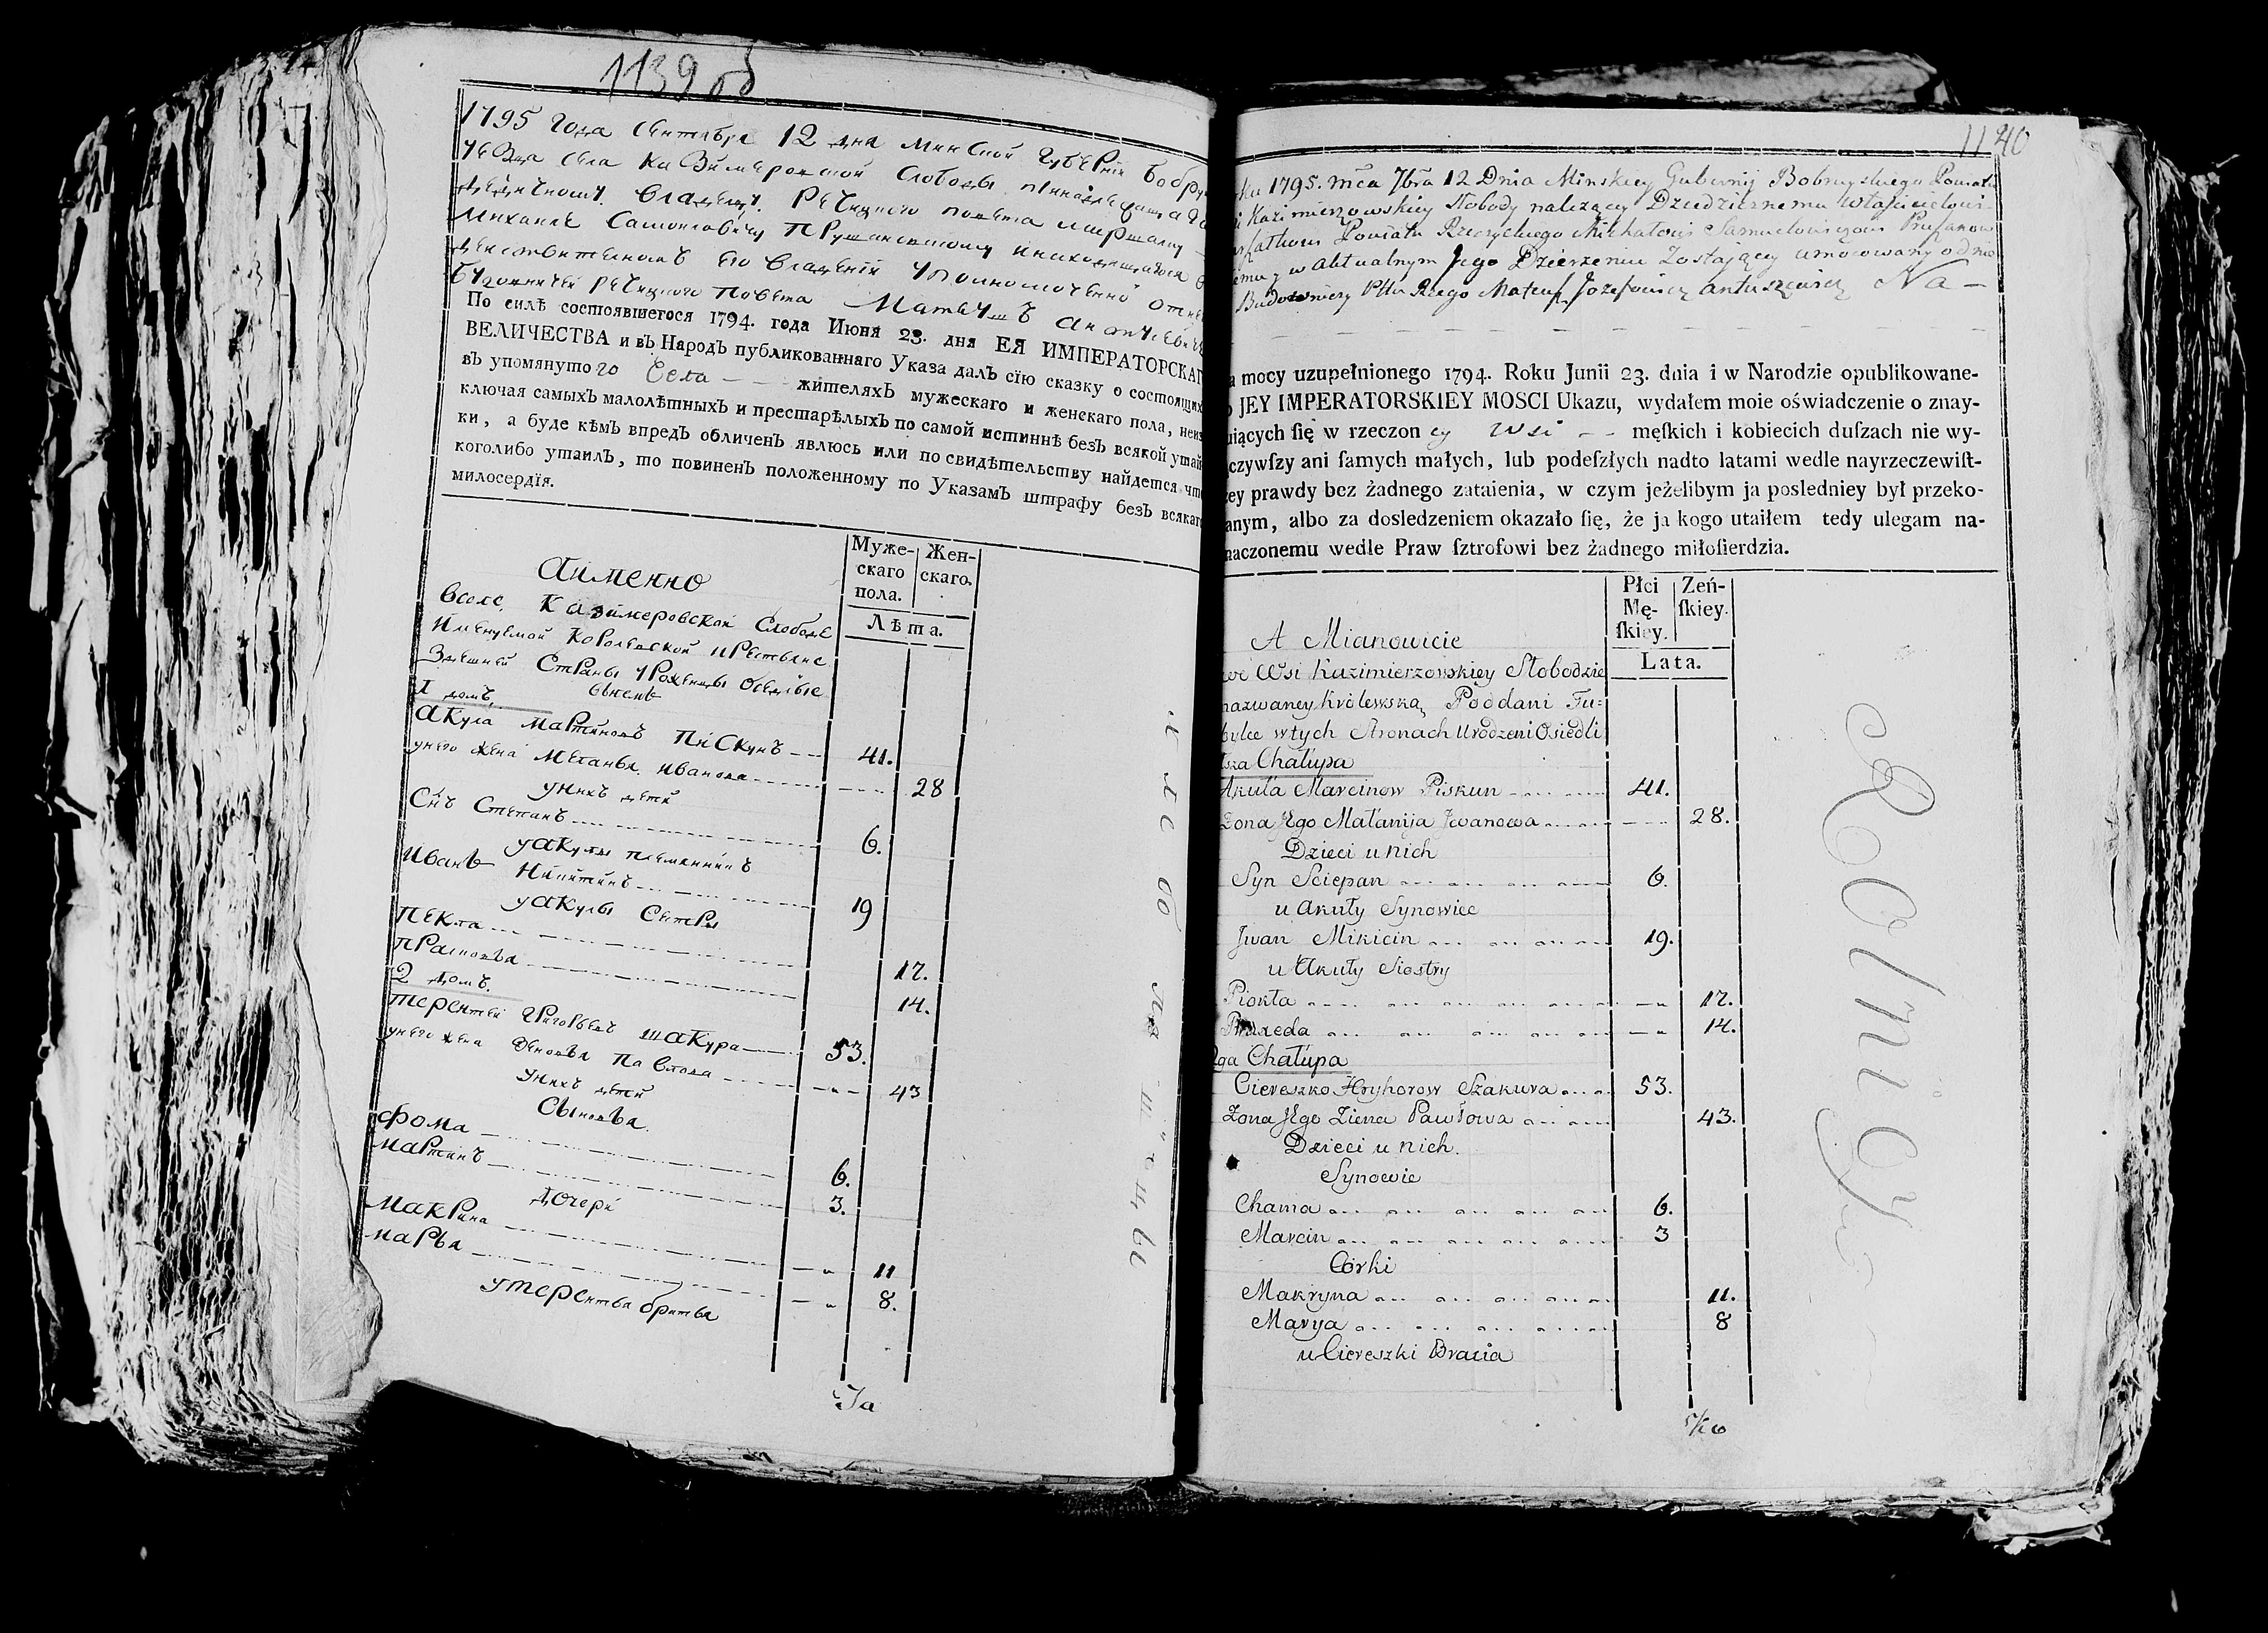 1139 об
1795 года сентября 12 дня Минской губернiи Бобруй
уезда села Казимеровской Слободы принадлежащаго
дедичному владельцу Речицкого повета маршалку
Михаиле Самойловичу Прушановскому и находящагося
действительномъ его владенiи уполномоченной от него
будовничей Речицкого повета Матеушъ Антушевичъ
По силѣ состоявшегося 1794. года Июня 23. дня ЕЯ ИМПЕРАТОРСКАГ
ВЕЛИЧЕСТВА и въ Народъ публикованнаго Указа далъ сїю сказку о состоящих
въ упомянутого Села -- жителяхъ мужескаго и женскаго пола, неиз
ключая самыхъ малолѣтныхъ и престарѣлыхъ по самой истиннѣ безъ всякой утай
ки, а буде кѣмъ впредъ обличенъ явлюсь или по свидѣтельству найдется что
коголибо утаилъ, то повиненъ положенному по Указамъ штрафу безъ всякаго
милосердїя.
Муже-скаго пола. Жен-скаго.
Лѣта.
Аименно
Вселе Казимеровской Слободе
Именуемой Королевской крестьяне
Здешней Страны Уроженцы Оседлые
1 домъ
Акула Мартиновъ Пискунъ 41.
унего жена Меланья Иванова 28
Унихъ дети
Снъ Степанъ 6.
у Акулы племянникъ
Иванъ Никитинъ 19
у Акулы Сестры
Пекла 17.
Прасковья 14.
2 домъ.
Терентей Григорьевъ Шакура 53.
унего жена Зеновья Павлова 43
Унихъ дети
Сыновья.
Фома 6.
Мартинъ 3.
Дочери
Макрина 11
Марья 8.
У Терентья братья
Та
1140
ku 1795. mca 7bra 12 Dnia Minskiey Gubernij Bobruyskiego Powiatu
i Kazimierzowskiey Slobody nalezącey Dziedzicznemu Właścicielowi
arszałkowi Powiatu Rzeczyckiego Michałowi Samuelowiczowi Pruszanow
emu y w aktualnym Jego Dzierzeniu Zostającey umocowany od nie
Budowniczy Pttu Rzego Mateusz Jozefowicz Antuszewicz Na -
a mocy uzupełnionego 1794. Roku Junii 23. dnia i w Narodzie opublikowane-
o JEY IMPERATORSKIEY MOSCI Ukazu, wydałem moie oświadczenie o znay-
uiących ſię w rzeczoney Wsi -- męſkich i kobiecich duſzach nie wy-
czywſzy ani ſamych małych, lub podeſzłych nadto latami wedle nayrzeczewiſt-
ey prawdy bez żadnego zataienia, w czym jeżelibym ja posledniey był przeko-
anym, albo za dosledzeniem okazało ſię, że ja kogo utaiłem tedy ulegam na-
naczonemu wedle Praw ſztrofowi bez żadnego miłoſierdzia.
Płci Mę-ſkiey. Zeń-ſkiey.
Lata.
A Mianowicie
we Wsi Kazimierzowskiey Slobodzie
nazwaney Krolewską Poddani Tu=
bylce wtych Stronach Urodzeni Osiedli
1sza Chałupa
Akuła Marcinow Piskun 41.
Zona Jego Małanija Jwanowa 28.
Dzieci u nich
Syn Sciepan 6.
u Akuły Synowiec
Jwan Mikicin 19.
u Akuły Siostry
Piokła 17.
Praxeda 14.
2ga Chałupa
Ciereszko Hryhorow Szakura 53.
Zona Jego Ziena Pawłowa 43.
Dzieci u nich.
Synowie
Chama 6.
Marcin 3
Córki
Makryna 11.
Marya 8
u Ciereszki Bracia